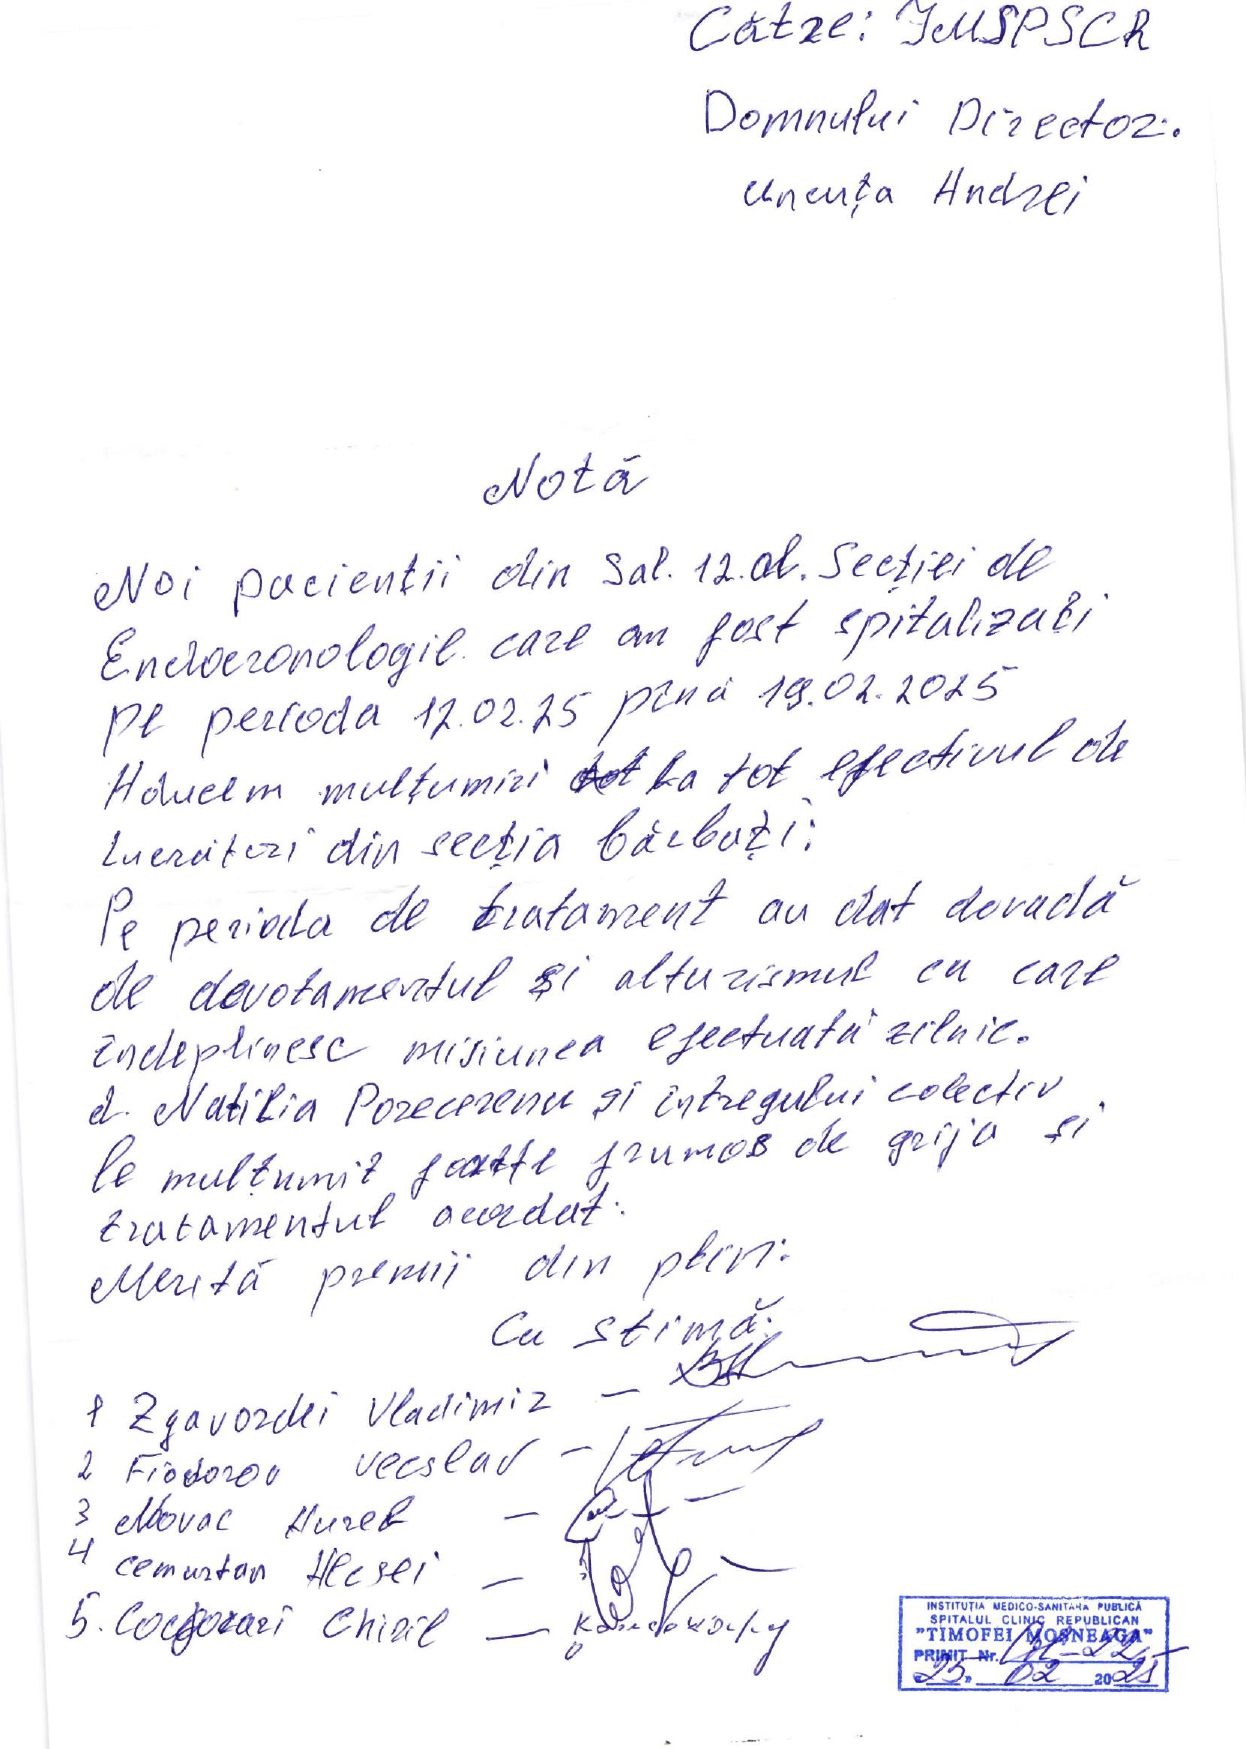 Cătze: IMSPSCR
Domnului Director:.
Uncuța Andrei
Notă
Noi pacienții din Sal. 12. al. Secției de
Endocronologie. care au fost spitalizați
pe perioda 12.02.25 pînă 19.02.2025
Aducem mulțumiri la tot efectivul de
lucrători din secția bărbați:
Pe perioda de tratament au dat dovadă
de devotamentul și alturismul cu care
îndeplinesc misiunea efectuată zilnic.
d. Natilia și întregului colectiv
le mulțumit foarte frumos de grija și
tratamentul acordat.
Merită premii din plin:
Cu stimă:
1 Zgavordei Vladimir —
2 Fiodorov Vecslav —
3 Novac Aurel —
4 Cemurtan Alecsei —
5. Chiril —
INSTITUȚIA MEDICO-SANITARĂ PUBLICĂ
SPITALUL CLINIC REPUBLICAN
"TIMOFEI MOȘNEAGA"
PRIMIT Nr.
"25" 02 2025